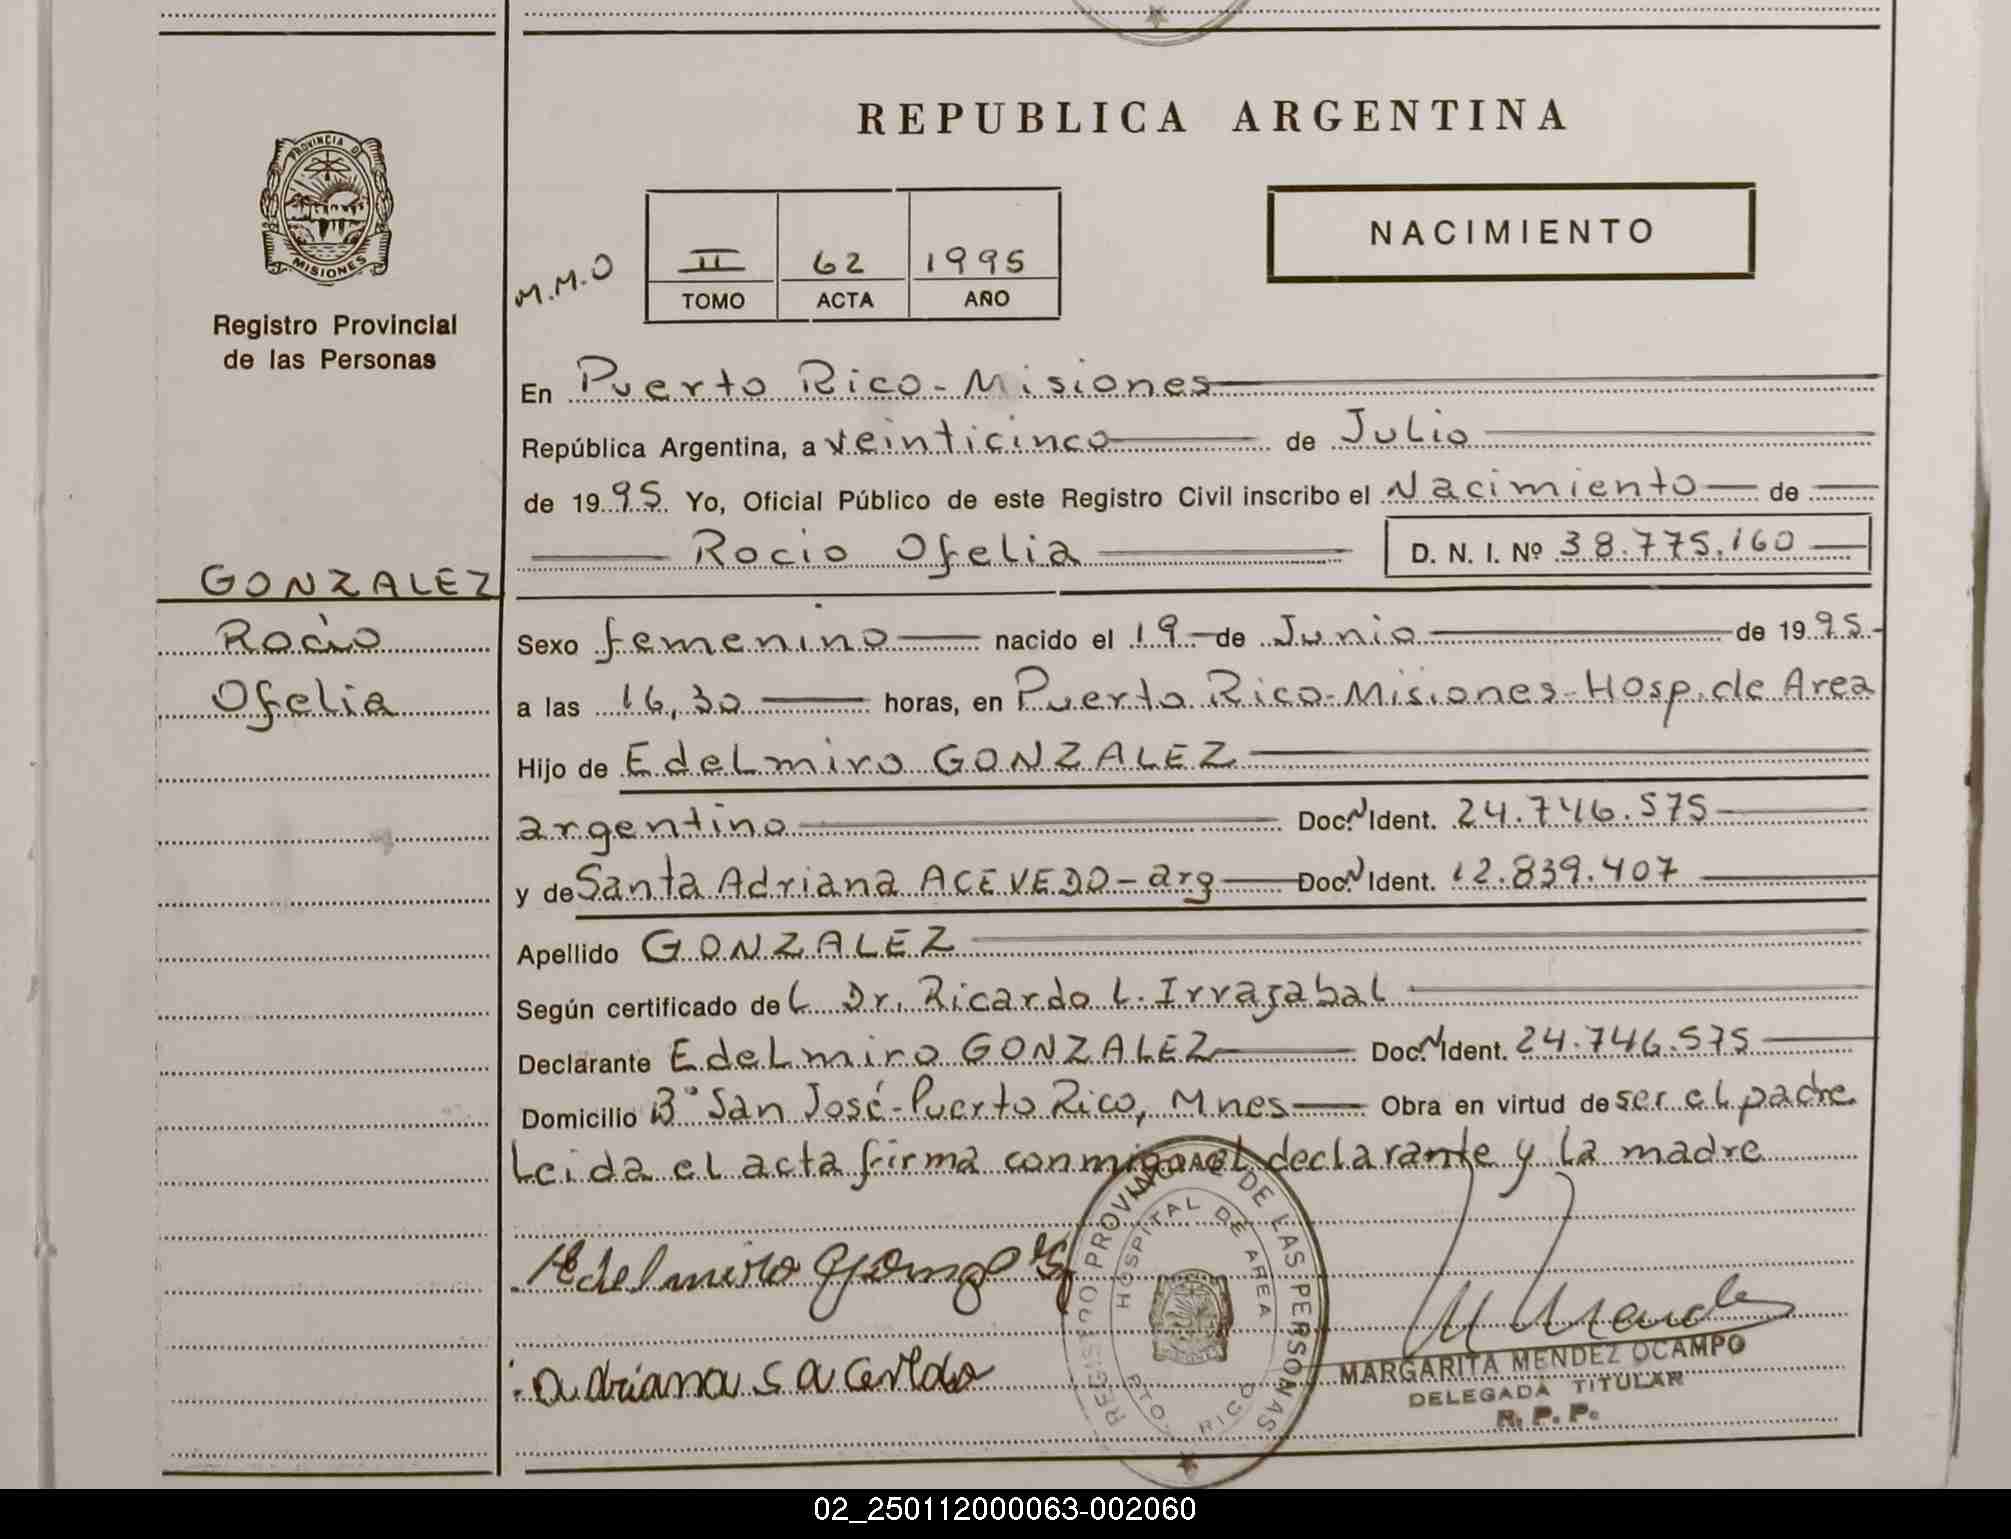 REPUBLICA ARGENTINA
PROVINCIA D
MISIONES
Registro Provincial
de las Personas
M.M.O
II 62 1995
TOMO ACTA AÑO
NACIMIENTO
En Puerto Rico - Misiones
República Argentina, a veinticinco de Julio
de 1995 Yo, Oficial Público de este Registro Civil inscribo el Nacimiento de
Rocio Ofelia D. N. I. Nº 38.775.160
GONZALEZ
Rocio
Ofelia
Sexo femenino nacido el 19 de Junio de 1995
a las 16,30 horas, en Puerto Rico-Misiones-Hosp. de Area
Hijo de Edelmiro GONZALEZ
argentino Doc. N Ident. 24.746.575
y de Santa Adriana ACEVEDO - arg Doc. N Ident. 12.839.407
Apellido GONZALEZ
Según certificado del Dr. Ricardo L. Irrazabal
Declarante Edelmiro GONZALEZ Doc. N Ident. 24.746.575
Domicilio Bº San José - Puerto Rico, Mnes Obra en virtud de ser el padre
Leida el acta firma conmigo el declarante y la madre
Edelmiro Gonzales
Adriana S Acevedo
REGISTRO PROVINCIAL DE LAS PERSONAS
HOSPITAL DE AREA
PTO. RICO
MARGARITA MENDEZ OCAMPO
DELEGADA TITULAR
R. P. P.
02_250112000063-002060